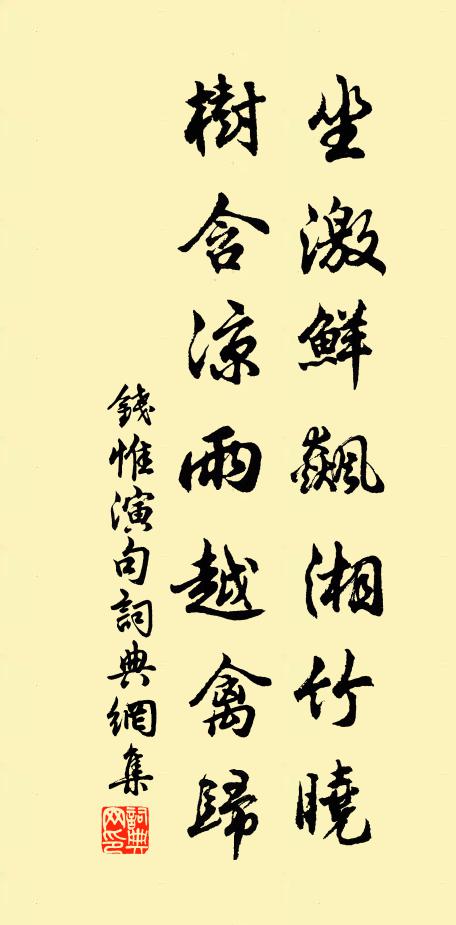 坐激鮮飆湘竹曉
樹含涼雨越禽歸
錢惟演句詞典網集
詞典網印